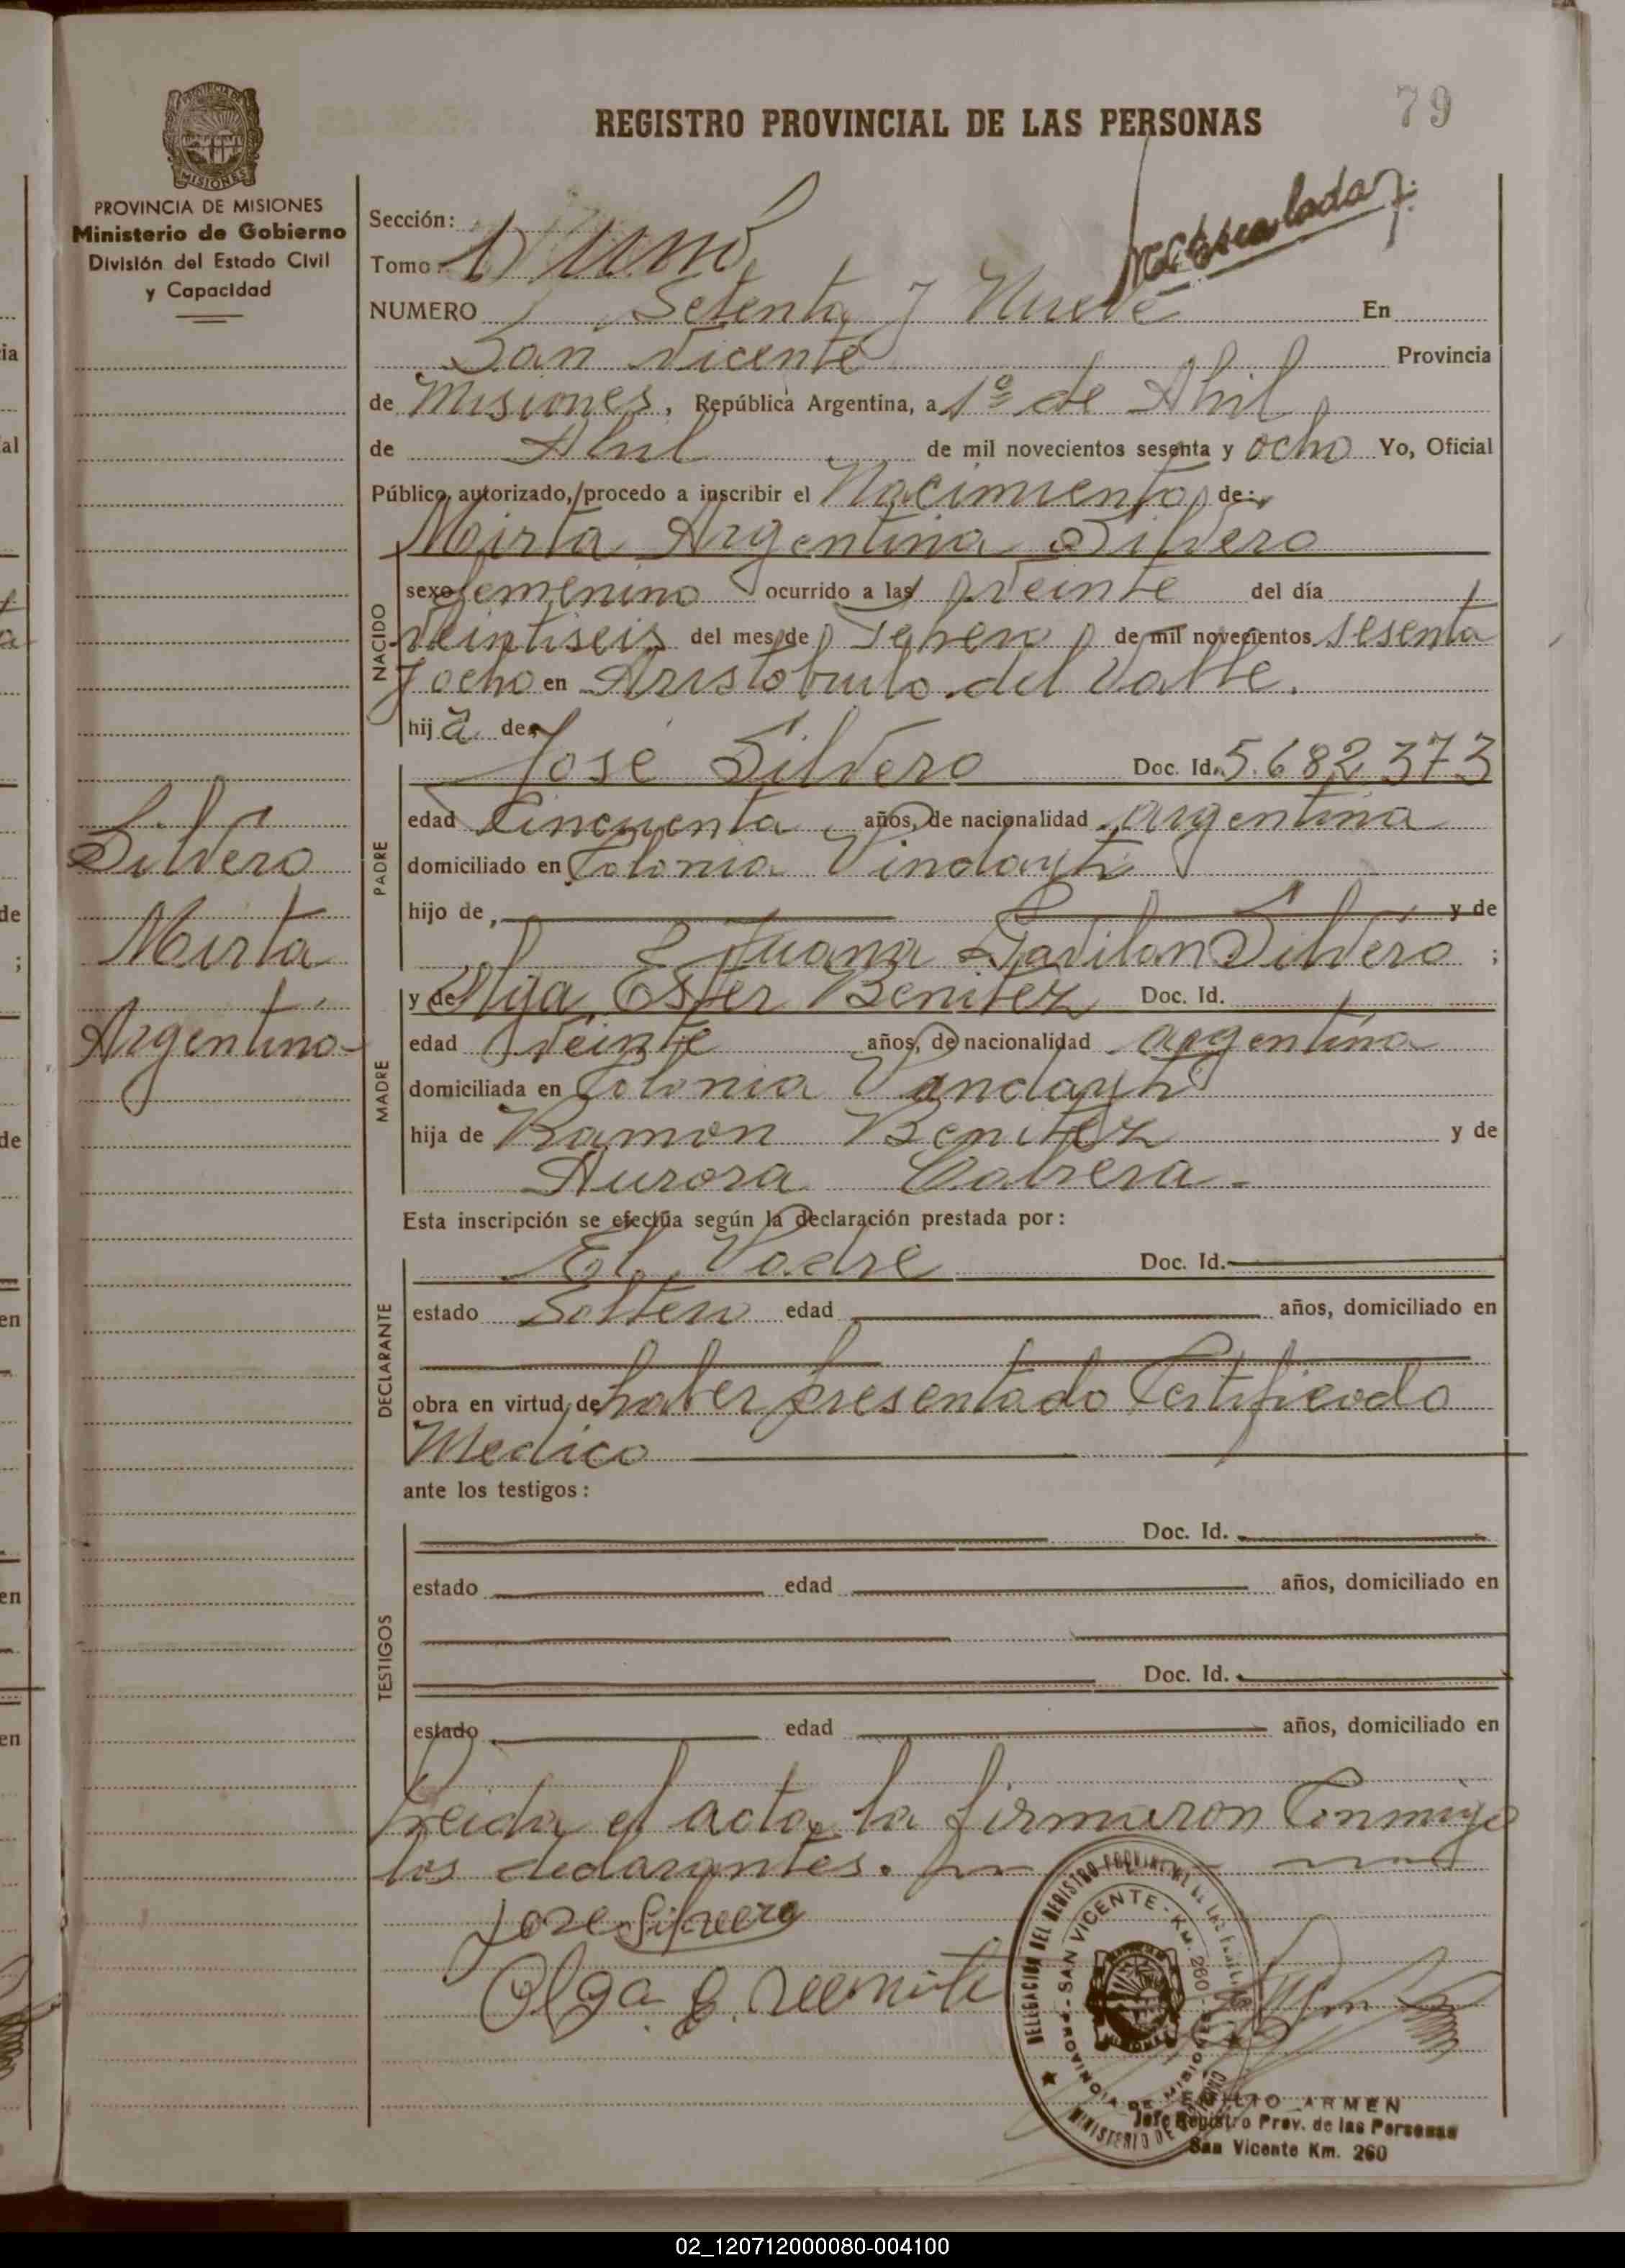 REGISTRO PROVINCIAL DE LAS PERSONAS
79
MISIONES
PROVINCIA DE MISIONES
Ministerio de Gobierno
División del Estado Civil
y Capacidad
Sección:
Tomo: 1) uno
NUMERO Setenta y Nueve En
San Vicente Provincia
de Misiones, República Argentina, a 1º de Abril
de Abril de mil novecientos sesenta y ocho Yo, Oficial
Público autorizado, procedo a inscribir el Nacimiento de:
Mirta Argentina Silvero
NACIDO
sexo femenino ocurrido a las veinte del día
veintiseis del mes de Febrero de mil novecientos sesenta
y ocho en Aristobulo del Valle.
hija de
PADRE
José Silvero Doc. Id. 5.682.373
edad Cincuenta años, de nacionalidad argentina
domiciliado en Colonia
hijo de y de
Juana Silvero ;
MADRE
y de Olga Ester Benitez Doc. Id.
edad Veinte años, de nacionalidad argentina
domiciliada en Colonia
hija de Ramon Benitez y de
Aurora Cabrera.
Silvero
Mirta
Argentina
Esta inscripción se efectúa según la declaración prestada por:
DECLARANTE
El Padre Doc. Id.
estado Soltero edad años, domiciliado en
obra en virtud de haber presentado Certificado
Medico
ante los testigos:
TESTIGOS
Doc. Id.
estado edad años, domiciliado en
Doc. Id.
estado edad años, domiciliado en
Leida el acta, la firmaron Conmigo
los declarantes.
Jose Silvero
Olga E
DELEGACION DEL REGISTRO PROVINCIAL DE LAS PERSONAS
SAN VICENTE - KM. 260
PROVINCIA DE MISIONES
MINISTERIO DE
EMILIO ARMEN
Jefe Registro Prov. de las Personas
San Vicente Km. 260
02_120712000080-004100